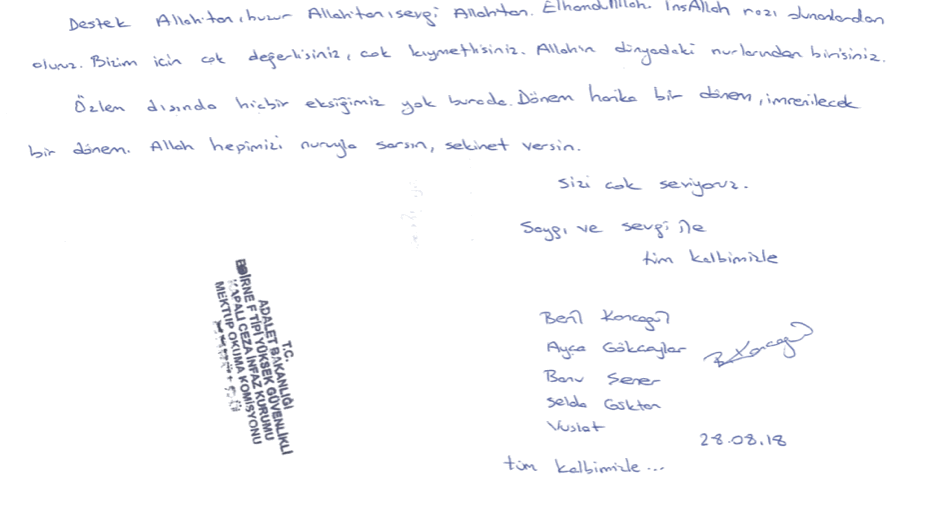 Destek Allah'tan, huzur Allah'tan, sevgi Allahtan. Elhamdulillah. InsAllah razı olunanlardan
oluruz. Bizim icin cok değerlisiniz, cok kıymetlisiniz. Allahın dünyadaki nurlarından birisiniz.
Özlem dısında hicbir eksiğimiz yok burada. Dönem harika bir dönem, imrenilecek
bir dönem. Allah hepimizi nuruyla sarsın, sekinet versin.
Sizi cok seviyoruz.
Saygı ve sevgi ile
tüm kalbimizle
T.C.
ADALET BAKANLIĞI
EDİRNE F TİPİ YÜKSEK GÜVENLİKLİ
KAPALI CEZA İNFAZ KURUMU
MEKTUP OKUMA KOMİSYONU
Beril Koncagül
Ayca Gökcaylar
Banu Sener
Selda Göktan
Vuslat
28.08.18
tüm kalbimizle...